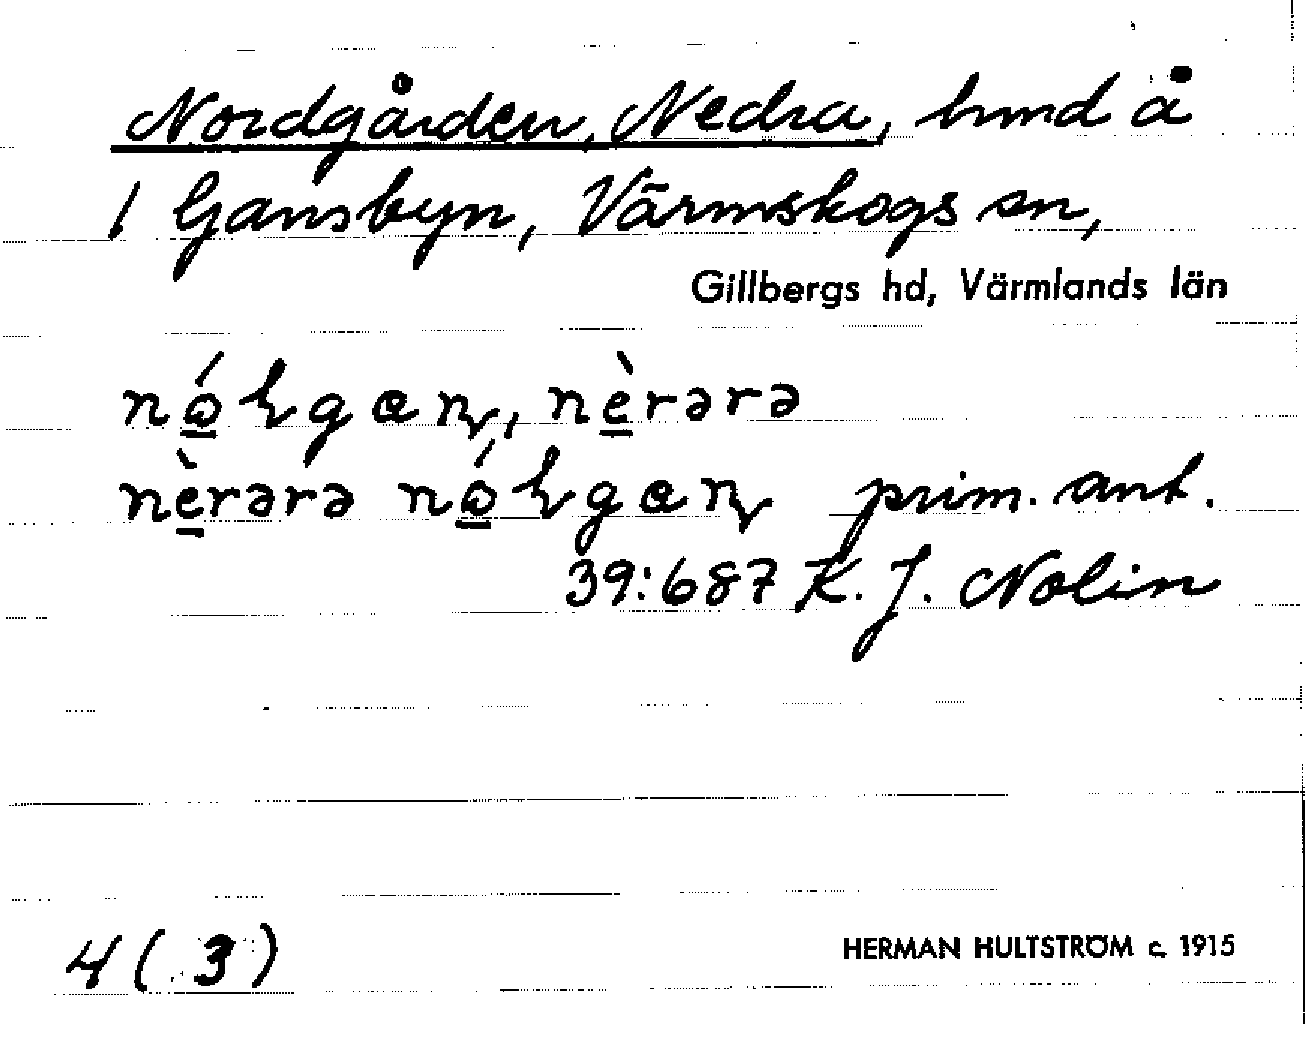 Nordgården, Nedra, hmd å
1 Gansbyn, Värmskogs sn,
Gillbergs hd, Värmlands län
prim. ant.
39:687 K. J. Nolin
4 (3)
HERMAN HULTSTRÖM c. 1915